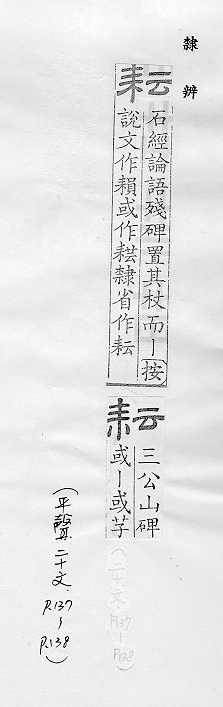 隸辨
耘
石經論語殘碑置其杖而丨按
說文作䅼或作𦔐隸省作耘
耘
三公山碑
或丨或芓
(平聲二十文
P.137
~
P.138)
(二十文
P.137
~
P.138)